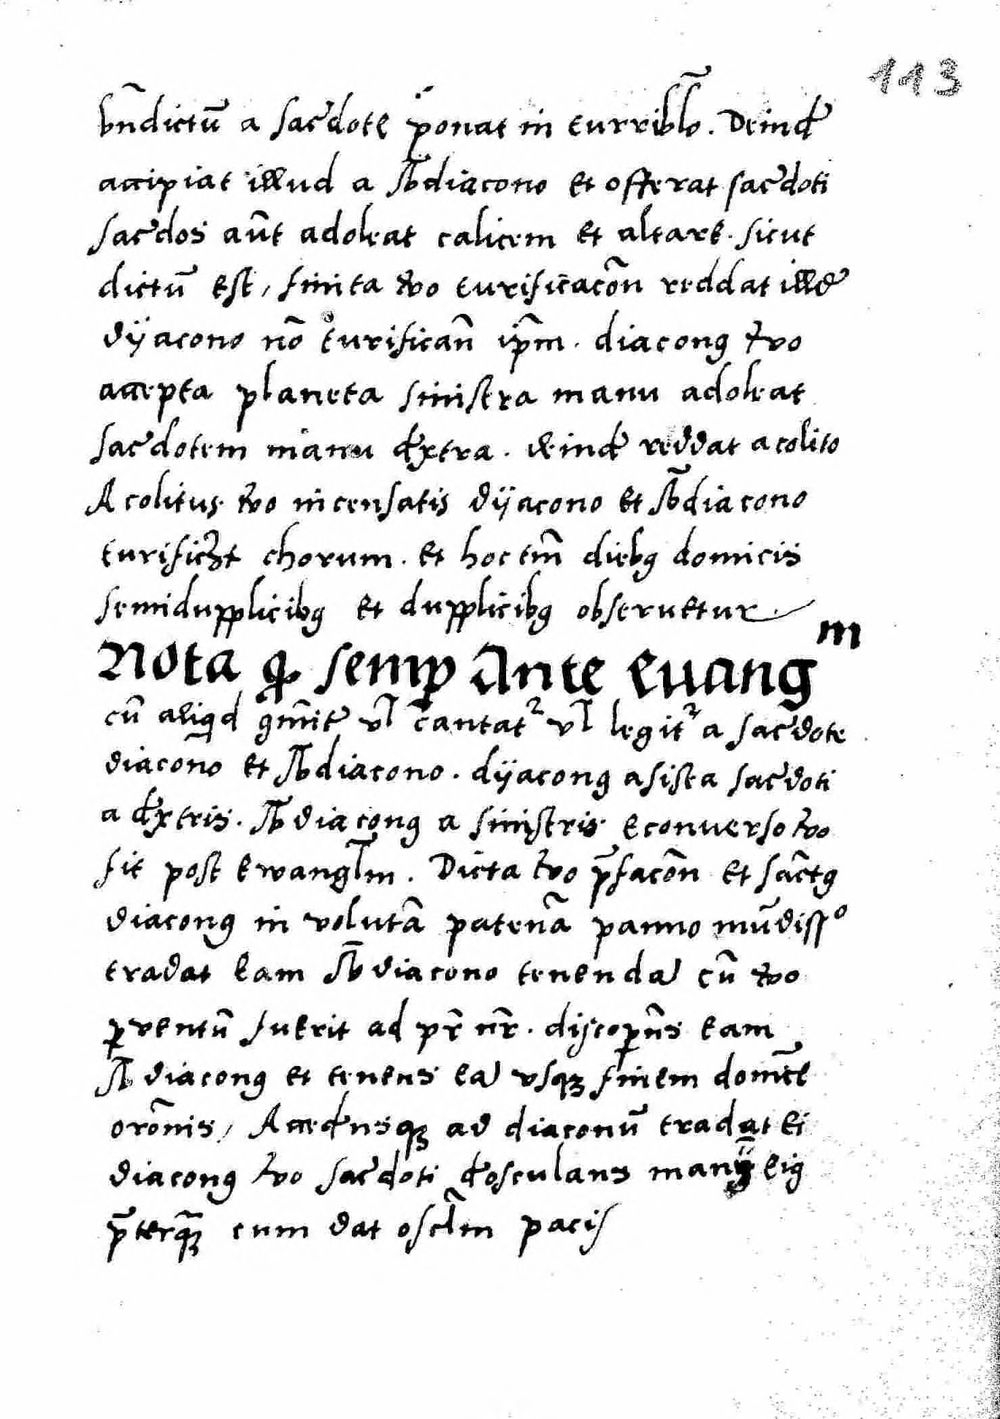 113
bn̄dictū a sac̉dote ponat in turribl̄o. Deind̉
accipiat illud a sb̄diacono et offerat sac̉doti
sac̉dos aūt adoleat calicem et altare. sicut
dictū est, finita v̉o turificac̄on reddat ill̉
dÿacono nō turificān ip̄m. diaconꝰ v̉o
accepta planeta sinistra manu adoleat
sac̉dotem manu d̉xtra. deind̉ reddat acolito
Acolitus v̉o incensatis dÿacono et sb̄diacono
chorum. et hoc tm̄ diebꝰ domicis
semidupplicibꝰ et dupplicibꝰ obseruetur
Nota ꝙ semꝑ Ante Euangᵐ
cū aliqd ꝯm̄iter vl̄ cantatᷣ vl̄ legitᷣ a sac̉dote
diacono et sb̄diacono. dÿaconꝰ asista sac̉doti
a d̉xtris. sb̄diaconꝰ a sinistris econuerso v̉o
fit post Ewangl̄m. Dicta v̉o p̄fac̄on et sāctꝰ
diaconꝰ in volutā patenā panno mūdissº
tradat eam sb̄diacono tenendā cū v̉o
ꝑventū fuerit ad pr̄ nr̄. discoꝑiēs eam
sb̄diaconꝰ et tenens eā usqꝫ finem domīce
orōnis, Acced̉nsqꝫ ad diaconū tradat ei
diaconꝰ v̉o sac̉doti d̉osculans manꝰ eiꝰ
p̄terqꝫ̄ cum dat oscl̄m pacis